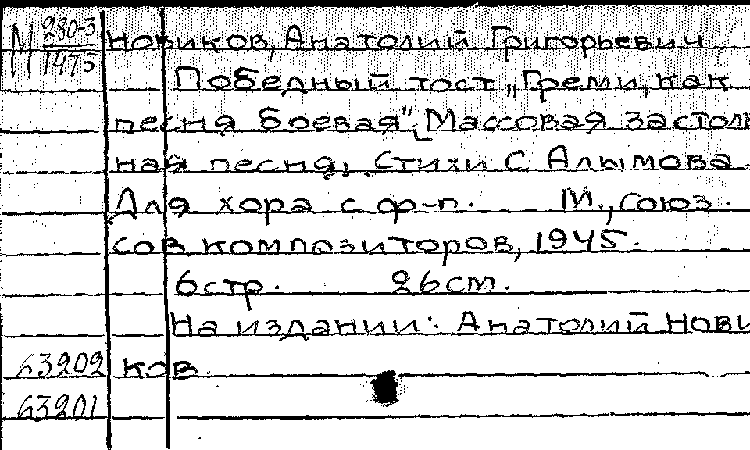 М 280-3/1475
Новиков, Анатолий Григорьевич
Победный тост „Греми, как
песня боевая". [Массовая застоль
ная песня]. Стихи С Алымова
Для хора с ф-п. М., союз.
сов композиторов, 1945.
6стр. 26см.
На издании: Анатолий Нови
63202 ков
63201